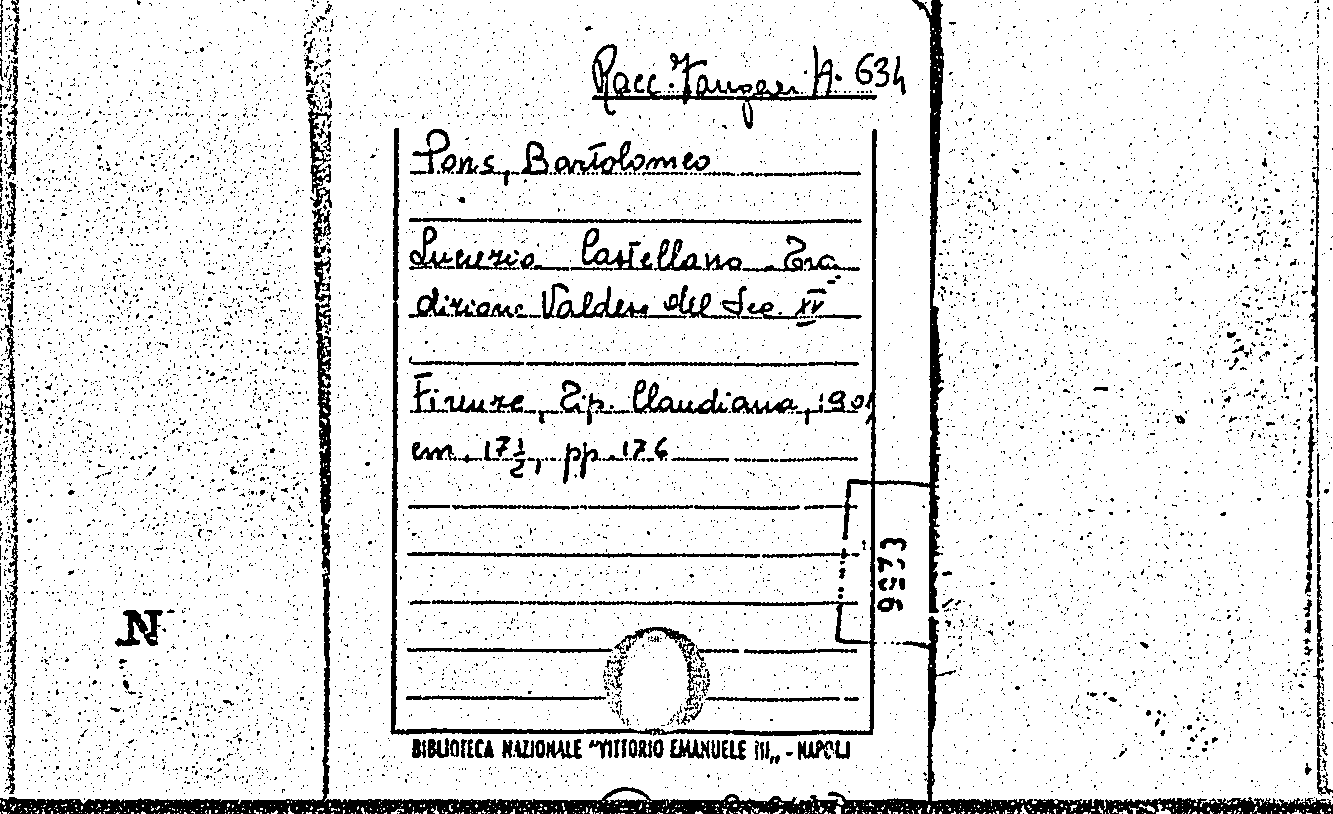 Racc. Vangari A. 634
Pons, Bartolomeo
Lucrezio Castellano Tra
dizione Valdese del Sec. XV
Firenze, Tip. Claudiana, 190
cm. 17½, pp. 176
9973
N
BIBLIOTECA NAZIONALE "VITTORIO EMANUELE III„ - NAPOLI